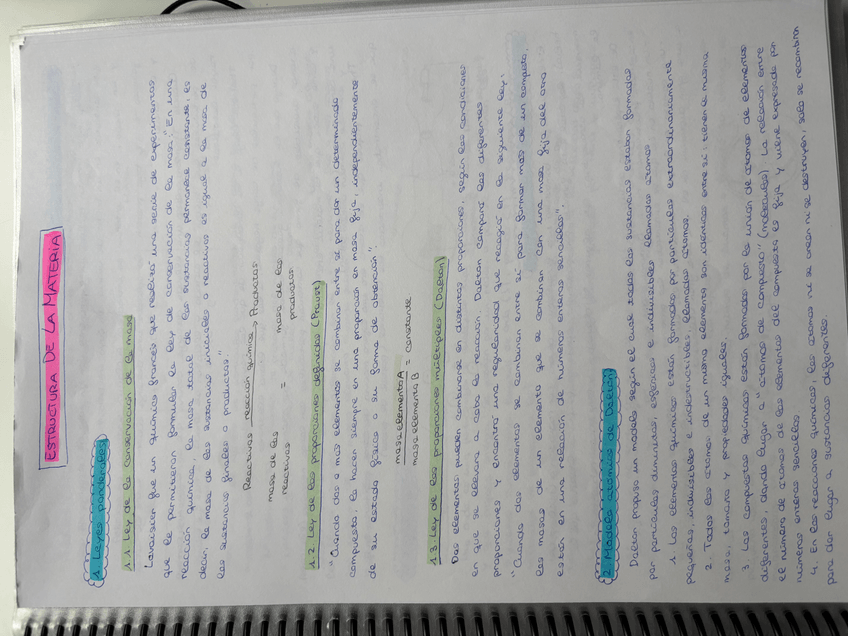 ESTRUCTURA DE LA MATERIA
1. Leyes ponderales
1.1. Ley de la conservación de la masa
Lavoisier fue un químico francés que realizó una serie de experimentos
que le permitieron formular la ley de conservación de la masa: "En una
reacción química, la masa total de las sustancias permanece constante, es
decir, la masa de las sustancias iniciales o reactivos es igual a la masa de
las sustancias finales o productos."
Reactivos reacción química → Productos
masa de los reactivos = masa de los productos
1.2. Ley de las proporciones definidas (Proust)
"Cuando dos o más elementos se combinan entre sí para dar un determinado
compuesto, lo hacen siempre en una proporción en masa fija, independientemente
de su estado físico o su forma de obtención".
masa elemento A / masa elemento B = constante
1.3. Ley de las proporciones múltiples (Dalton)
Dos elementos pueden combinarse en distintas proporciones, según las condiciones
en que se llevara a cabo la reacción. Dalton comparó las diferentes
proporciones y encontró una regularidad que recogió en la siguiente ley:
"Cuando dos elementos se combinan entre sí para formar más de un compuesto,
las masas de un elemento que se combinan con una masa fija del otro
están en una relación de números enteros sencillos".
2. Modelo atómico de Dalton
Dalton propuso un modelo según el cual todas las sustancias estaban formadas
por partículas diminutas, esféricas e indivisibles llamadas átomos
1. Los elementos químicos están formados por partículas extraordinariamente
pequeñas, indivisibles e indestructibles, llamadas átomos.
2. Todos los átomos de un mismo elemento son idénticos entre sí: tienen la misma
masa, tamaño y propiedades iguales.
3. Los compuestos químicos están formados por la unión de átomos de elementos
diferentes, dando lugar a "átomos de compuesto" (moléculas). La relación entre
el número de átomos de los elementos del compuesto es fija y viene expresada por
números enteros sencillos
4. En las reacciones químicas, los átomos ni se crean ni se destruyen, solo se recombinan
para dar lugar a sustancias diferentes.